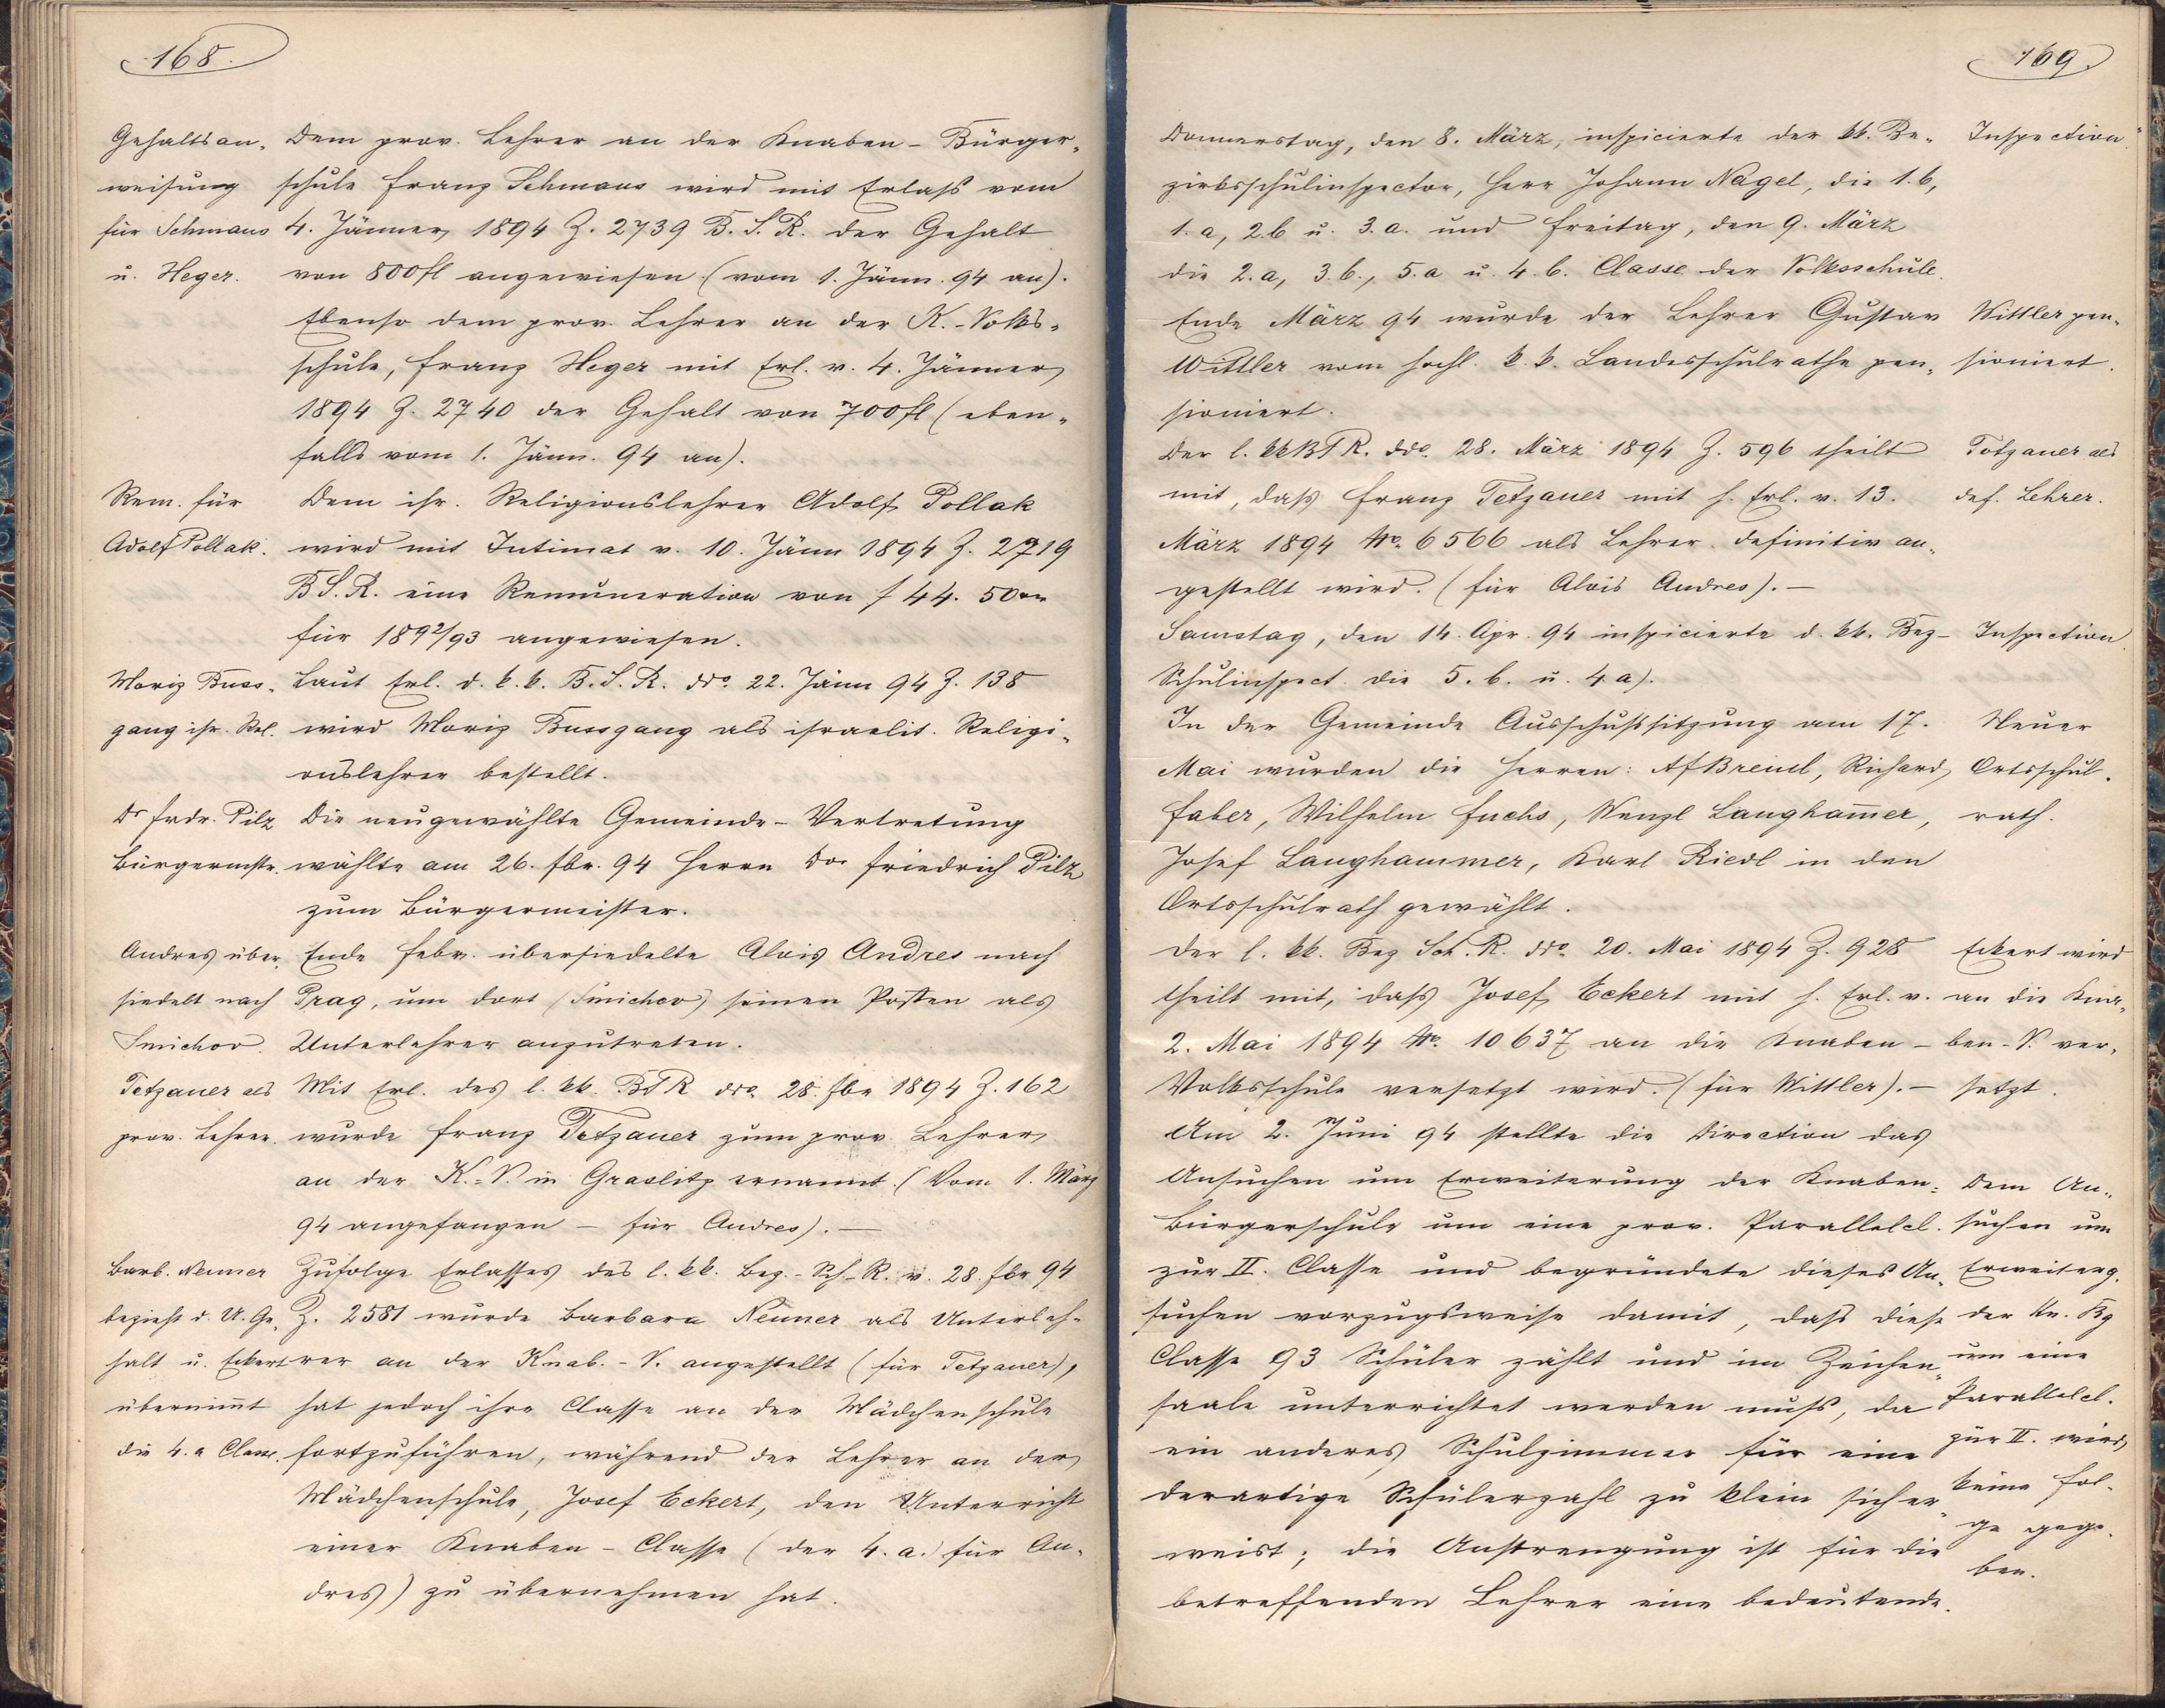 168.
Gehaltsan-
weisung
für Schmaus
u. Heger.
Dem prov. Lehrer an der Knaben-Bürger-
schule Franz Schmaus wird mit Erlaß vom
4. Jänner 1894 Z. 2739 B. S. R. der Gehalt
von 800 fl angewiesen (vom 1. Jänn. 94 an).
Ebenso dem prov. Lehrer an der K.-Volks-
schule, Franz Heger mit Erl. v. 4. Jänner
1894 Z. 2740 der Gehalt von 700 fl (eben-
falls vom 1. Jänn. 94 an).
Rem. für
Adolf Pollak.
Dem isr. Religionslehrer Adolf Pollak
wird mit Intimat v. 10. Jänn 1894 Z. 2719
B S. R. eine Remuneration von f 44. 50 
für 1892/93 angewiesen.
Moriz Buss-
gang isr. Rel.
Laut Erl. d. k. k. B. S. R. ddo. 22. Jänn 94 Z. 138
wird Moriz Bussgang als israelit. Religi-
onslehrer bestellt.
Dr Frdr. Pilz
Bürgermstr.
Die neugewählte Gemeinde-Vertretung
wählte am 26. Fbr. 94 Herrn Dor Friedrich Pilz
zum Bürgermeister.
Andres über-
siedelt nach
Smichov.
Ende Febr. übersiedelte Alois Andres nach
Prag, um dort (Smichov) seinen Posten als
Unterlehrer anzutreten.
Tetzauer als
prov. Lehrer.
Mit Erl. des l. kk. BSR ddo. 28. Fbr 1894 Z. 162
wurde Franz Tetzauer zum prov. Lehrer
an der K.-V. in Graslitz ernannt. (Vom 1. März
94 angefangen – für Andres). –
Barb. Neuner
bezieht d. U. Ge-
halt u. Eckert
übernimt
die 4. a Classe.
Zufolge Erlasses des l. kk. Bez.-Sch-R. v. 28. Fbr 94
Z. 2581 wurde Barbara Neuner als Unterleh-
rer an der Knab.-V. angestellt (für Tetzauer),
hat jedoch ihre Classe an der Mädchenschule
fortzuführen, während der Lehrer an der
Mädchenschule, Josef Eckert, den Unterricht
einer Knaben-Classe (der 4. a. für An-
dres) zu übernehmen hat.
169.
Donnerstag, den 8. März, inspicierte der kk. Be-
zirksschulinspector, Herr Johann Nagel, die 1. b,
1. a, 2. b u. 3. a. und Freitag, den 9. März
die 2. a, 3. b., 5. a u. 4. b. Classe der Volksschule.
Inspection.
Ende März 94 wurde der Lehrer Gustav
Wittler vom hochl. k. k. Landesschulrathe pen-
sioniert.
Wittler pen-
sioniert.
Der l. kk BSR. ddo. 28. März 1894 Z. 596 theilt
mit, daß Franz Tetzauer mit h. Erl. v. 13.
März 1894 No. 6566 als Lehrer definitiv an-
gestellt wird. (für Alois Andres). –
Totzauer als
def. Lehrer.
Samstag, den 14. Apr. 94 inspicierte d. kk. Bez-
Schulinspect. die 5. b. u. 4. a).
Inspection.
In der Gemeinde Ausschußsitzung am 17.
Mai wurden die Herren: A. f Breinl, Richard
Faber, Wilhelm Fuchs, Wenzl Langhamer,
Josef Langhammer, Karl Riedl in den
Ortsschulrath gewählt.
Neuer
Ortsschul-
rath.
Der l. kk. Bez Sch. R. ddo. 20. Mai 1894 Z. 928
theilt mit, daß Josef Eckert mit h. Erl. v.
2. Mai 1894 No. 10637 an die Knaben-
Volksschule versetzt wird. (für Wittler). –
Eckert wird
an die Kna-
ben-V. ver-
setzt.
Am 2. Juni 94 stellte die Direction das
Ansuchen um Erweiterung der Knaben-
Bürgerschule um eine prov. Parallelcl.
zur II. Classe und begründete dieses An-
suchen vorzugsweise damit, daß diese
Classe 93 Schüler zählt und im Zeichen-
saale unterrichtet werden muß, da
ein anderes Schulzimmer für eine
derartige Schülerzahl zu klein sich er-
weist; die Anstrengung ist für die
betreffenden Lehrer eine bedeutende.
Dem An-
suchen um
Erweiterg.
der Kn. Bg
um eine
Parallelcl.
zur II. wird
keine Fol-
ge gege-
ben.